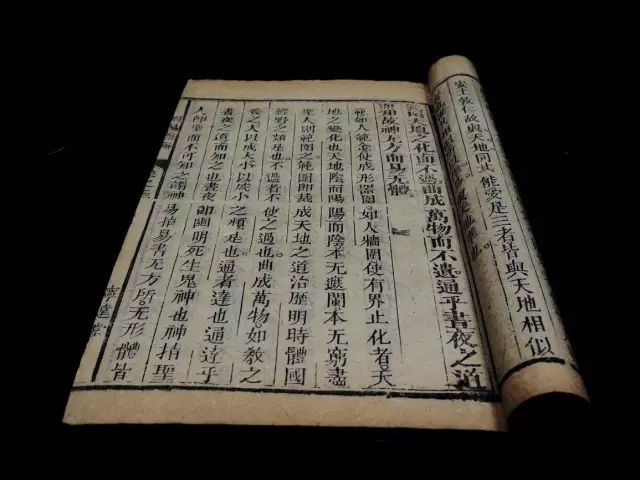 安土敦仁故與天地同其能愛是三者皆與天地相似
範圍天地之化而不過曲成萬物而不遺通乎晝夜之道
而知故神无方而易无體
範如人範金使成形器圍如人牆圍使有界止化者天
地之變化也天地陰而陽陽而陰本无遮闌本无窮盡
聖人則範圍之範圍即裁成天地之道治歷明時體國
經野之類是也不過者不使之過也曲成萬物如教之
養之大以成大小以成小之類是也通者達也通達乎
晝夜之道而知之也晝夜即幽明死生鬼神也神指聖
人即聖而不可知之謂神易指易書无方所无形體皆